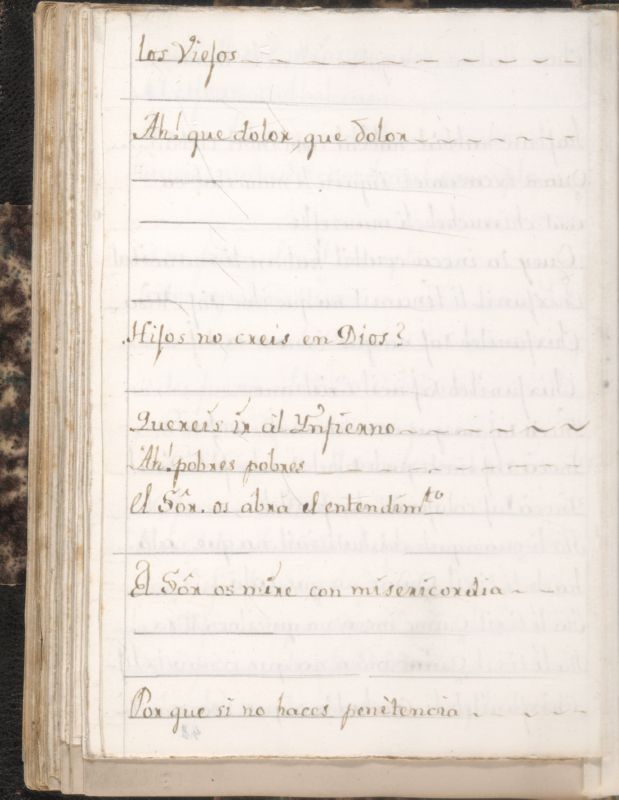 los Viejos
Ah! que dolor, que dolor
Hijos no creis en Dios?
Quereis ir al Ynfierno
Ah! pobres pobres
el Sôr. os abra el entendimto
El Sôr os mire con misericordia
Porque si no haces penitencia